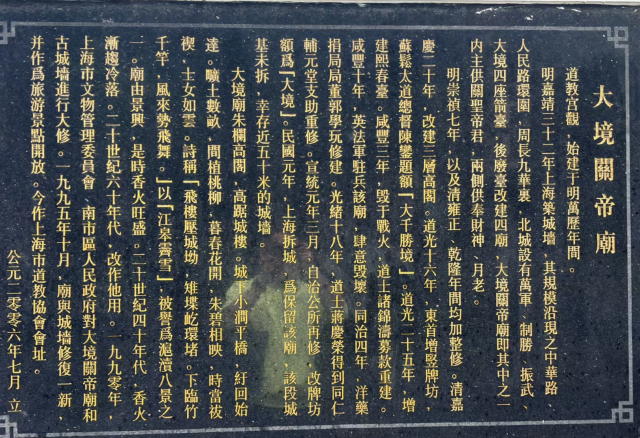 大境關帝廟
道教宮觀，始建于明萬歷年間。
明嘉靖三十二年上海築城墻，其規模沿現之中華路、
人民路環圍，周長九華裏，北城設有萬軍、制勝、振武、
大境四座箭臺，後廢臺改建四廟，大境關帝廟即其中之一
内主供關聖帝君，兩側供奉財神、月老。
明崇禎七年，以及清雍正、乾隆年間均加整修。清嘉
慶二十年，改建三層高閣。道光十六年，東首增竪牌坊，
蘇鬆太道總督陳鑾題額「大千勝境」。道光二十五年，增
建熙春臺。咸豐三年，毁于戰火，道士諸錦濤募款重建。
咸豐十年，英法軍駐兵該廟，肆意毁壞。同治四年，洋藥
捐局局董郭學玩修建。光緒十八年，道士蔣慶榮得到同仁
輔元堂支助重修。宣統元年三月，自治公所再修，改牌坊
額爲「大境」。民國元年，上海拆城，爲保留該廟，該段城
基未拆，幸存近五十米的城墻。
大境廟朱欄高閣，高踞城樓。城下小澗平橋，紆回始
達。曠土數畝，間植桃柳，暮春花開，朱碧相映，時當祓
禊，士女如雲。詩稱「飛樓壓城坳，雉堞屹環堵。下臨竹
千竿，風來勢飛舞。」以「江皋霽雪」，被譽爲滬瀆八景之
一。廟由景興，是時香火旺盛。二十世紀四十年代，香火
漸趨冷落。二十世紀六十年代，改作他用。一九九零年，
上海市文物管理委員會、南市區人民政府對大境關帝廟和
古城墻進行大修。一九九五年十月，廟與城墻修復一新，
并作爲旅游景點開放。今作上海市道教協會會址。
公元二零零六年七月 立